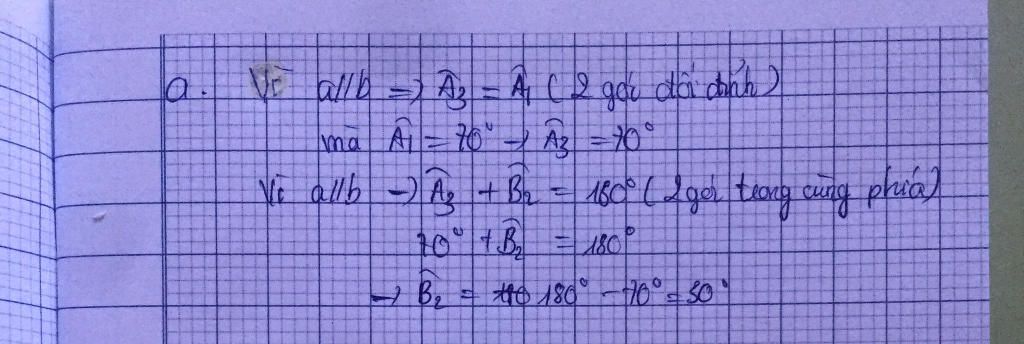 a. Vì a//b => Â3 = Â1 (2 góc đối đỉnh)
mà Â1 = 70° → Â3 = 70°
Vì a//b → Â3 + B̂2 = 180° (2 góc trong cùng phía)
70° + B̂2 = 180°
→ B̂2 = 180° - 70° = 50°